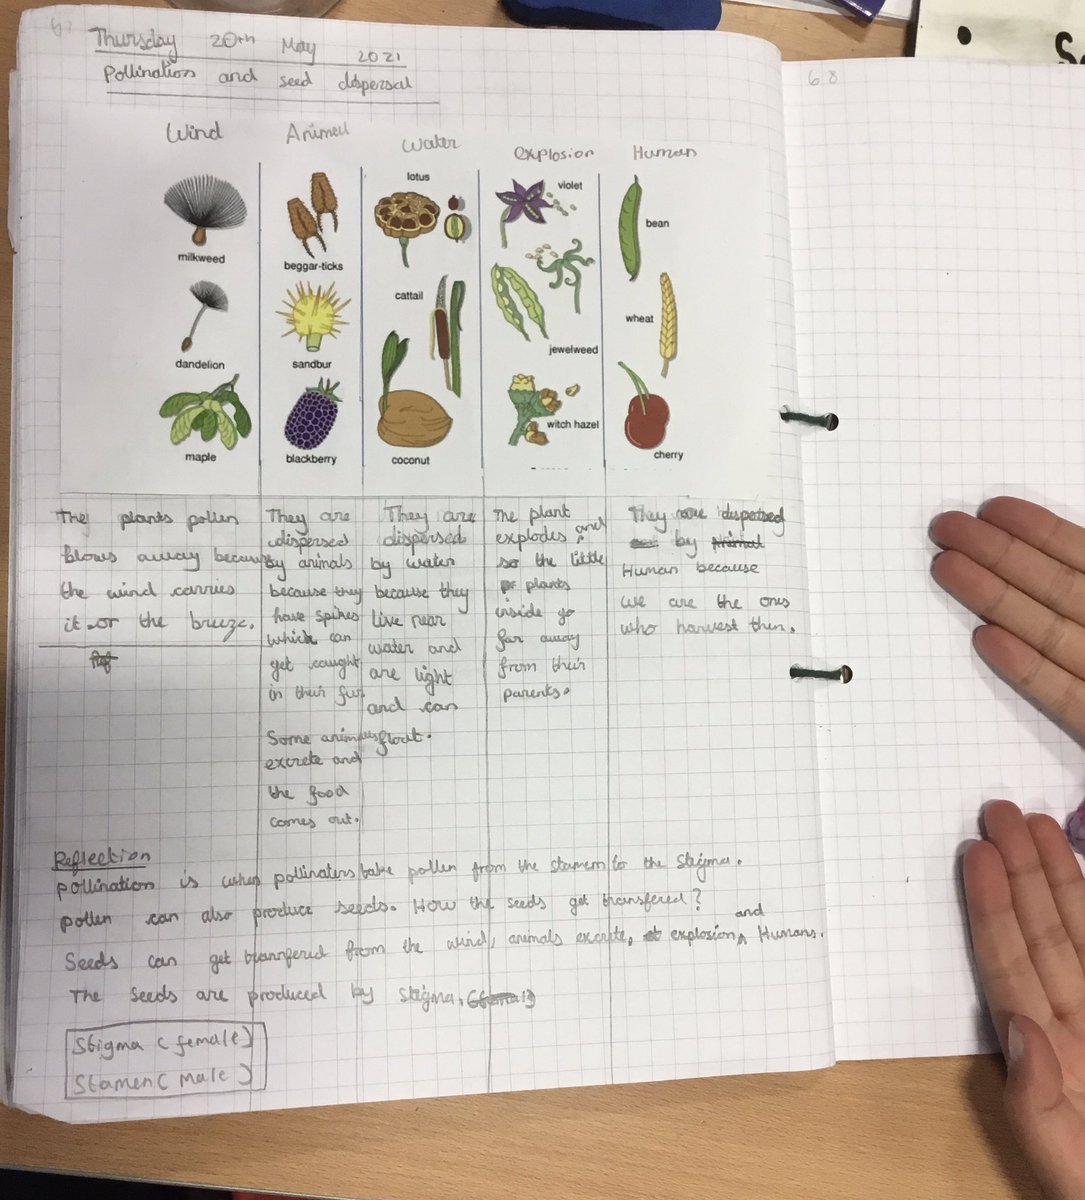 67
Thursday 20th May 2021
Pollination and seed dispersal
Wind
Animall
Water
explosion
Human
milkweed
dandelion
maple
beggar-ticks
sandbur
blackberry
lotus
cattail
coconut
violet
jewelweed
witch hazel
bean
wheat
cherry
The plants pollen
blows away because
the wind carries
it or the breeze.
They are
dispersed
by animals
because they
have spikes
which can
get caught
in their fur
Some animals
excrete and
the food
comes out.
They are
dispersed
by water
because they
live near
water and
are light
and can
float.
The plant
explodes and
so the little
plants
inside go
far away
from their
parents.
They are dispersed
by Animal
Human because
we are the ones
who harvest them.
Reflection
Pollination is when pollinaters take pollen from the stamen to the stigma.
pollen can also produce seeds. How the seeds get transfered?
Seeds can get trannfered from the wind, animals excrete, explosion and Humans.
The seeds are produced by stigma.
Stigma (female)
Stamen (male)
68